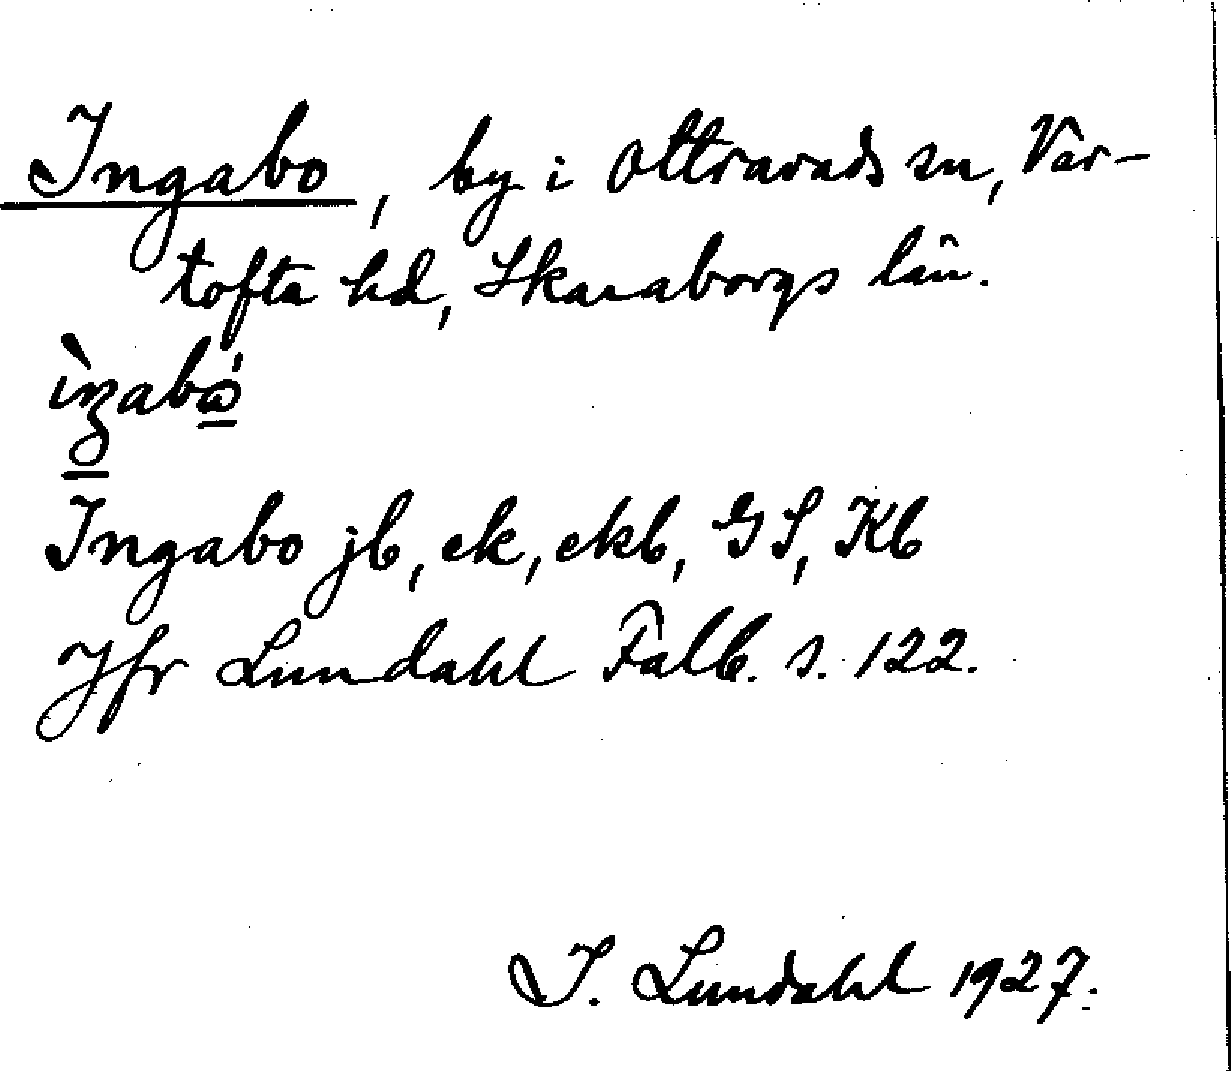 Ingabo, by i Ottravads sn, Var-
tofta hd, Skaraborgs län.
Ingabo jb, ek, ekb, GS, Kb
Jfr Lundahl Falb. s. 122.
I. Lundahl 1927.